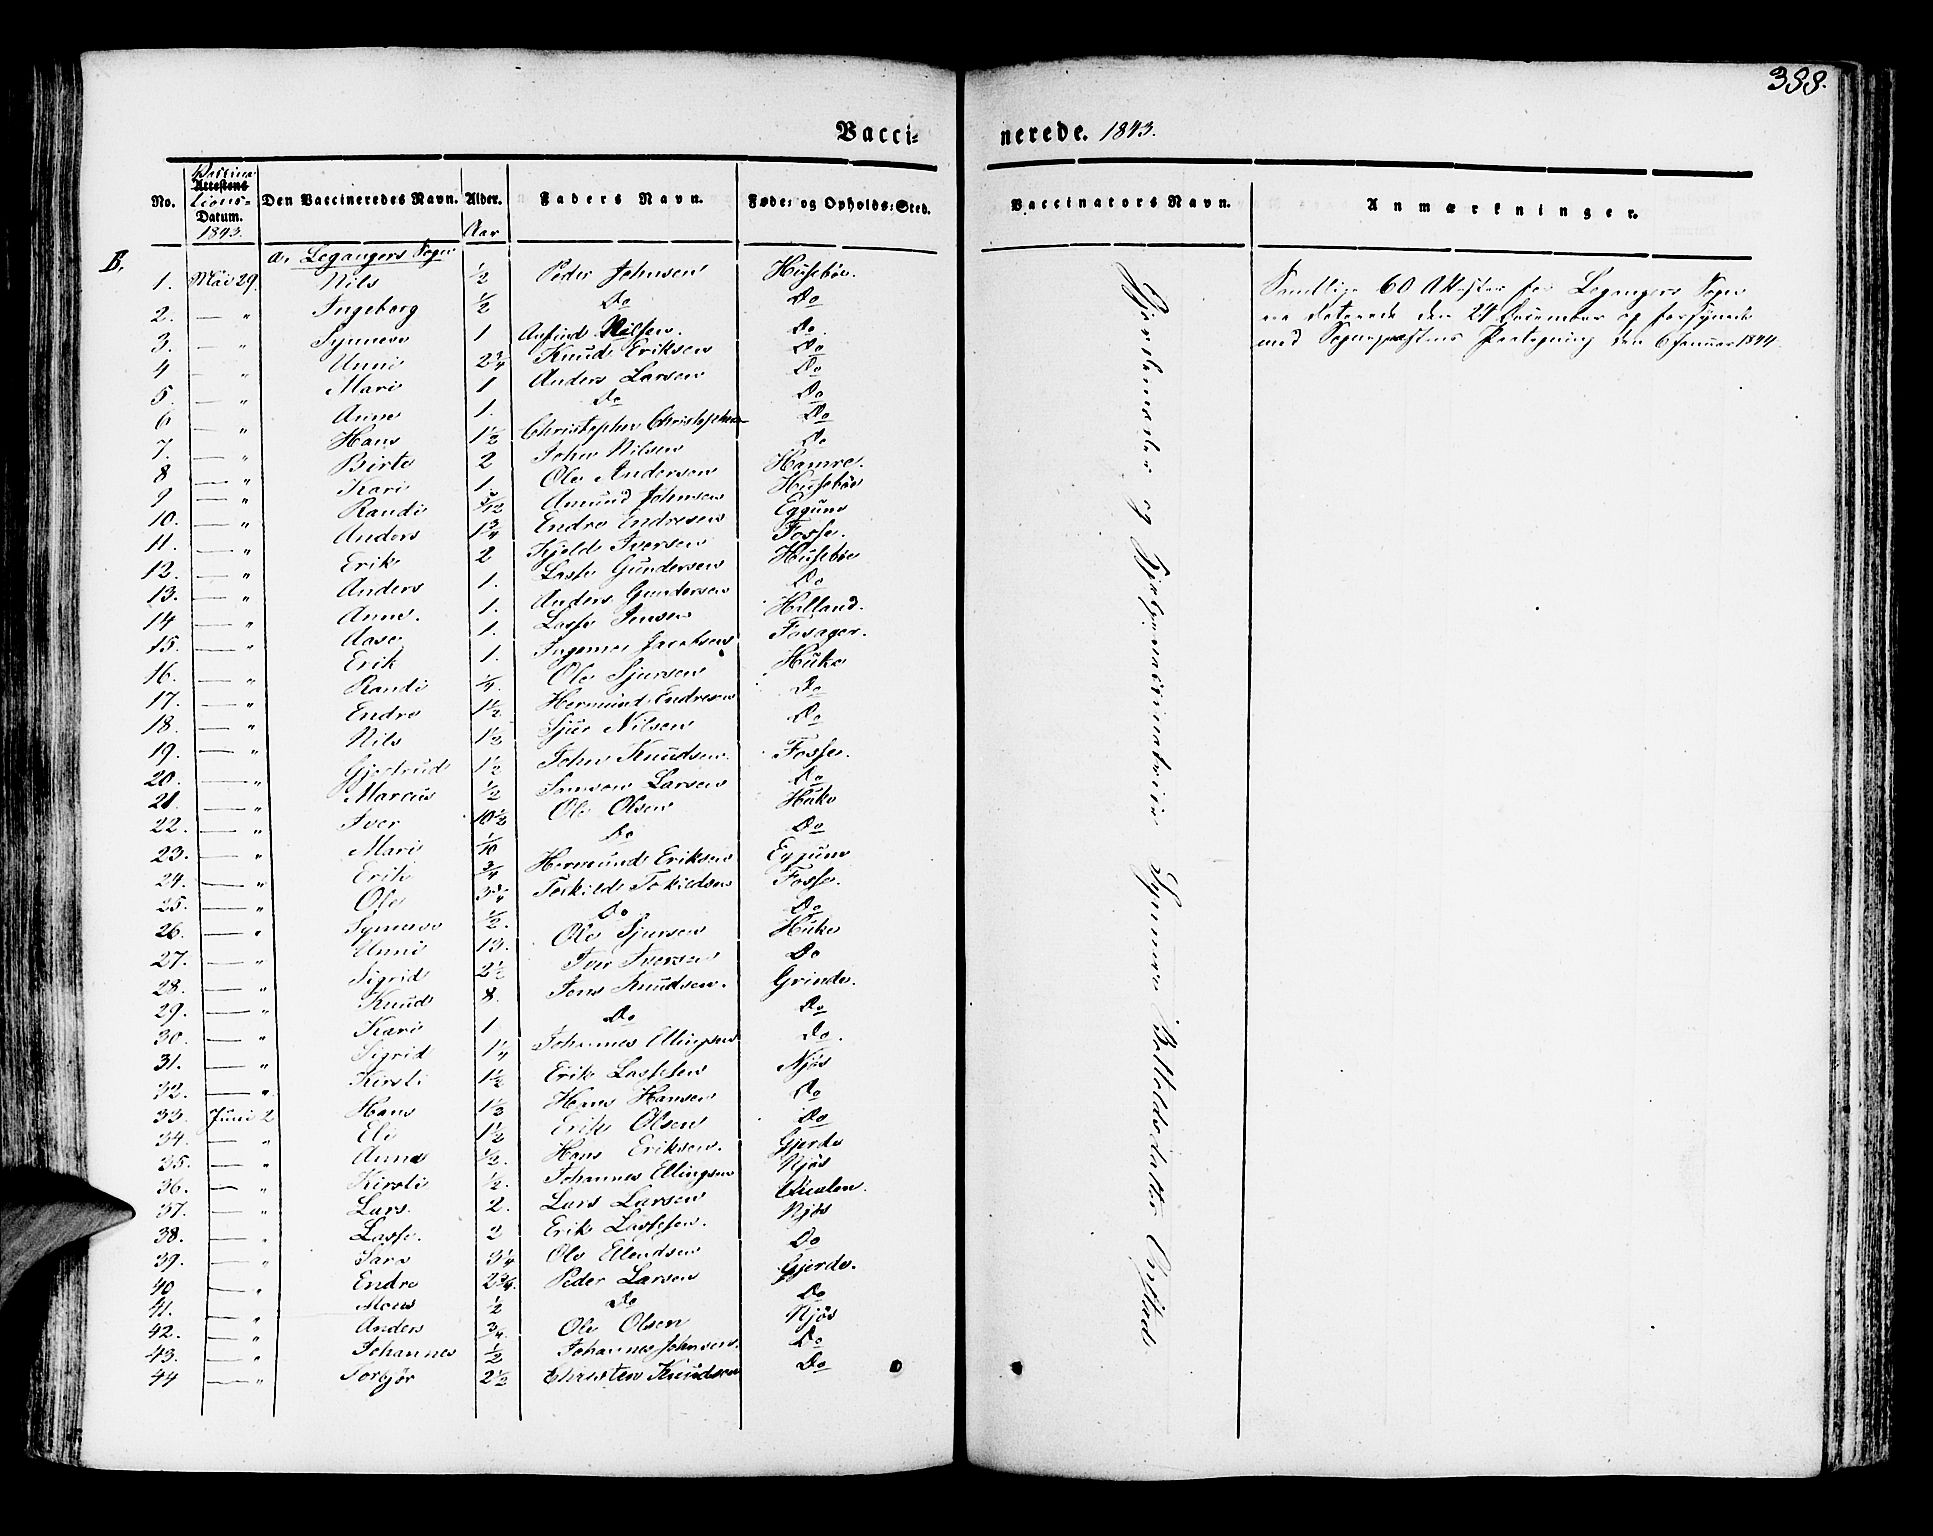 388.
Vacci-
nerede. 1843.
No.
Vaccina-
Attestens
tions-
Datum.
1843.
Den Vaccineredes Navn.
Alder.
Aar
Faders Navn.
Føde- og Opholds-Sted.
Vaccinators Navn.
Anmærkninger.
B.
a, Legangers Sogn
1. Mai 29. Nils ½ Peder Johnsen Husebøe.
2. — " Ingeborg ½ Do Do
3. — " Synneve 1 Anfind Nilsen. Do
4 — " Unni 2¾ Knud Eriksen Do
5. — " Mari 1 Anders Larsen Do
6 — " Anne 1. Do Do
7. — " Hans 1½ Christopher Christophersen Do
8 — " Birte 2 John Nilsen Do
9 — " Kari 1. Ole Andersen Hamre.
10. — " Randi 5/12 Amund Johnsen Husebøe
11. — " Anders 1¾ Endre Endresen Eggum
12. — " Erik 2 Kjeld Iversen Fosse.
13. — " Anders 1. Lasse Gundersen Husebøe
14 — " Anne. 1. Anders Gundersen Do
15. — " Aase 1. Lasse Jensen Hilland.
16. — " Erik 1. Ingemer Jacobsen Fosager.
17. — " Randi ¼. Ole Sjursen Huke
18. — " Endre 1½ Hermund Endresen Do
19. — " Nils 1½ Sjur Nilsen Do
20. — " Gjertrud 1½ John Knudsen. Fosse.
21 — " Marcus ½ Samson Larsen Do
22. — " Iver 10½ Ole Olsen Huke
23. — " Mari 1/10 Do Do
24. — " Erik ¾ Hermund Eriksen Eggum
25. — " Ole 3¾ Torkild Torkildsen Fosse.
26. — " Synneve ½. Do Do
27. — " Unni 13. Ole Sjursen Huke
28. — " Sigrid 2½ Iver Iversen Do
29. — " Knud 8. Jens Knudsen. Grinde.
30. — " Kari 1 Do Do
31. — " Sigrid 1¼ Johannes Ellingsen Do.
32. — " Kirsti 1½ Erik Lassesen Njøs
33. Juni 2 Hans 1½ Hans Hansen Do
34. — " Eli 1½ Erik Olsen Do
35. — " Anna ½. Hans Eriksen. Gjerde
36. — " Kirsti ½. Johannes Ellingsen Njøs
37. — " Lars. 2. Lars Larsen
38. — " Lasse. 2 Erik Lassesen. Njøs
39. — " Sara 3¼ Ole Ellendsen Do
40 — " Endre 2¾. Peder Larsen Gjerde.
41. — " Mons ½ Do Do
42. — " Anders ¾. Ole Olsen Njøs
43. — " Johannes ½ Johannes Johnsen. Do
44 — " Torbjør 2½ Christen Knudsen Do
Gjordemoder og Hjelpevaccinatrice Synneve Botholdsdatter Orstad
Samtlige 60 Attester for Legangers Sogn
ere daterede den 24 December og forsynede
med Sognepræstens Paategning den 6 Januar 1844.